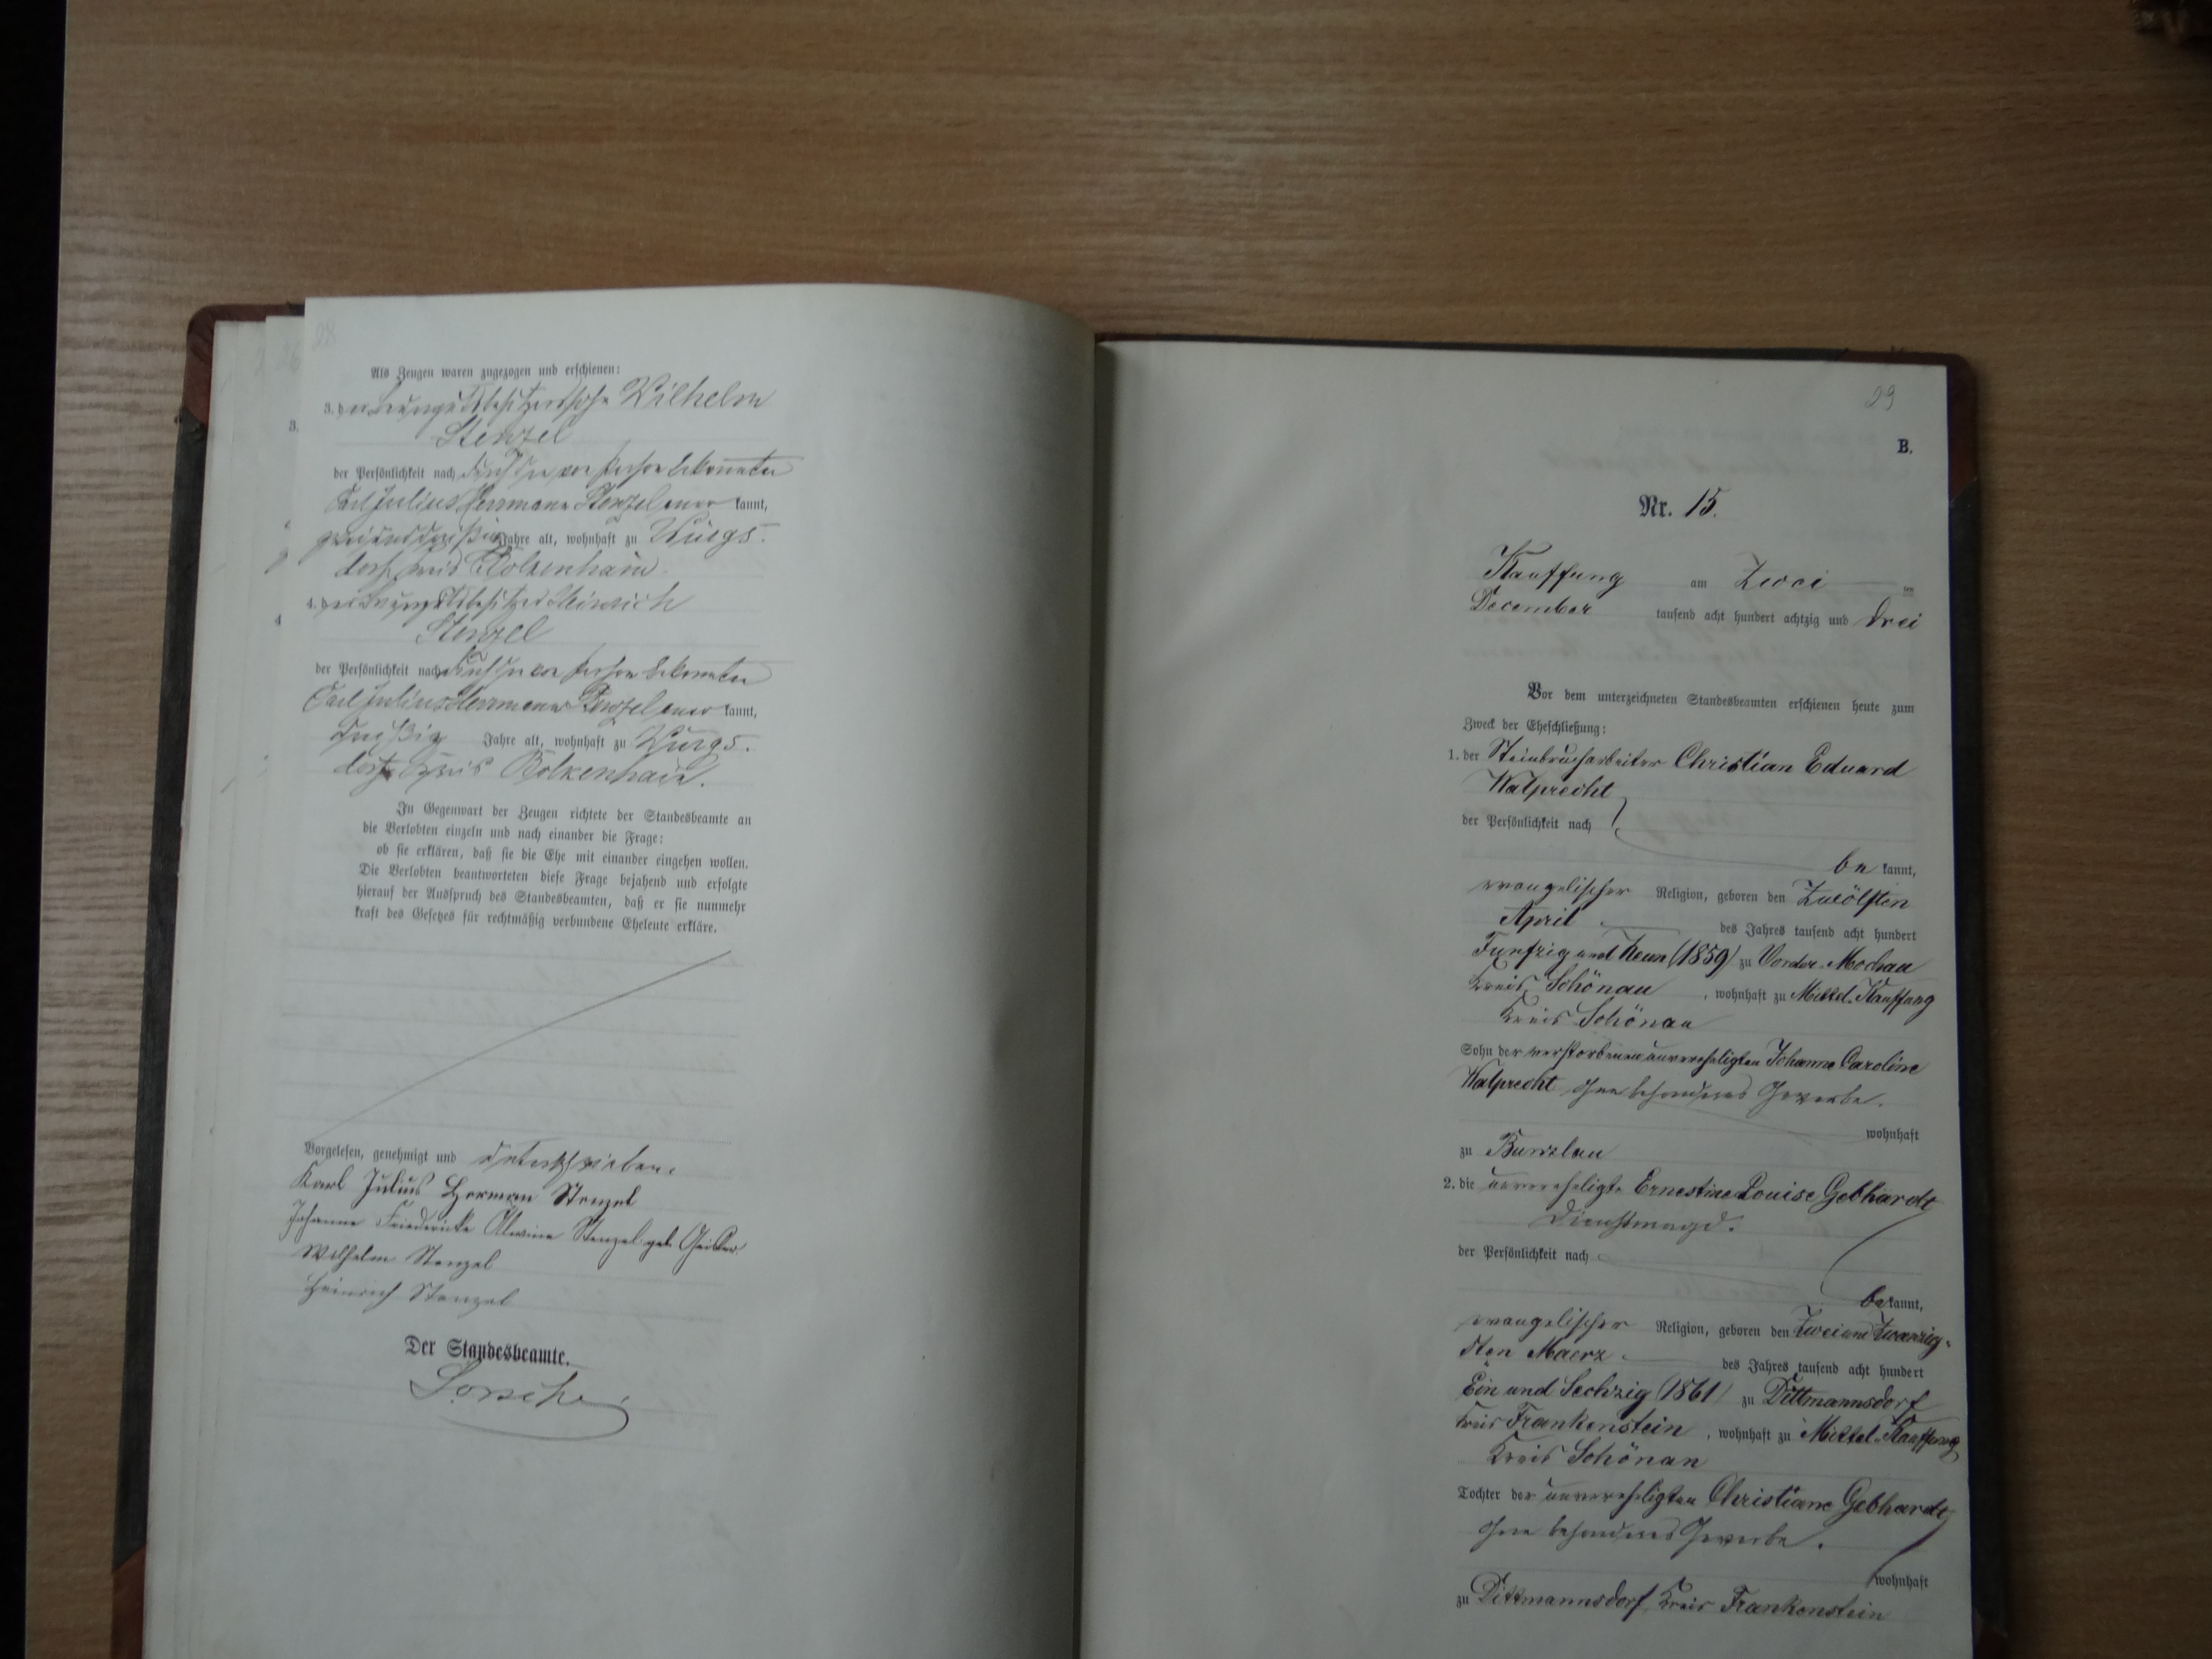 28
Als Zeugen waren zugezogen und erschienen:
3. der Wilhelm
3.
Stenzel
der Persönlichkeit nach durch den von Person bekannten
Carl Julius Herrmann Stenzel aner kannt,
zweiunddreißig Jahre alt, wohnhaft zu Würgs-
dorf Kreis Bolkenhain.
4. der Heinrich
4
Stenzel
der Persönlichkeit nach durch den von Person bekannten
Carl Julius Herrmann Stenzel aner kannt,
dreißig Jahre alt, wohnhaft zu Würgs-
dorf Kreis Bolkenhain.
In Gegenwart der Zeugen richtete der Standesbeamte an
die Verlobten einzeln und nach einander die Frage:
ob sie erklären, daß sie die Ehe mit einander eingehen wollen.
Die Verlobten beantworteten diese Frage bejahend und erfolgte
hierauf der Ausspruch des Standesbeamten, daß er sie nunmehr
kraft des Gesetzes für rechtmäßig verbundene Eheleute erkläre.
Vorgelesen, genehmigt und unterschrieben.
Karl Julius Herman Stenzel
Johanne Friedericke Alwine Stenzel geb. Geisler
Wilhelm Stenzel
Heinrich Stenzel
Der Standesbeamte.
29
B.
Nr. 15.
Kauffung am Zwei ten
December tausend acht hundert achtzig und drei
Vor dem unterzeichneten Standesbeamten erschienen heute zum
Zweck der Eheschließung:
1. der Steinbrucharbeiter Christian Eduard
Walprecht
der Persönlichkeit nach
be kannt,
evangelischer Religion, geboren den Zwölften
April des Jahres tausend acht hundert
Funfzig und Neun (1859) zu Vorder-Mochau
Kreis Schönau, wohnhaft zu Mittel-Kauffung
Kreis Schönau
Sohn der verstorbenen unverehelichten Johanne Caroline
Walprecht ohne besonderes Gewerbe.
wohnhaft
zu Bunzlau
2. die unverehelichte Ernestine Louise Gebhardt
Dienstmagd.
der Persönlichkeit nach
be kannt,
evangelischer Religion, geboren den Zwei und Zwanzig-
sten Maerz des Jahres tausend acht hundert
Ein und Sechzig (1861) zu Dittmannsdorf
Kreis Frankenstein, wohnhaft zu Mittel-Kauffung
Kreis Schönau
Tochter der unverehelichten Christiane Gebhardt
ohne besonderes Gewerbe.
wohnhaft
zu Dittmannsdorf, Kreis Frankenstein